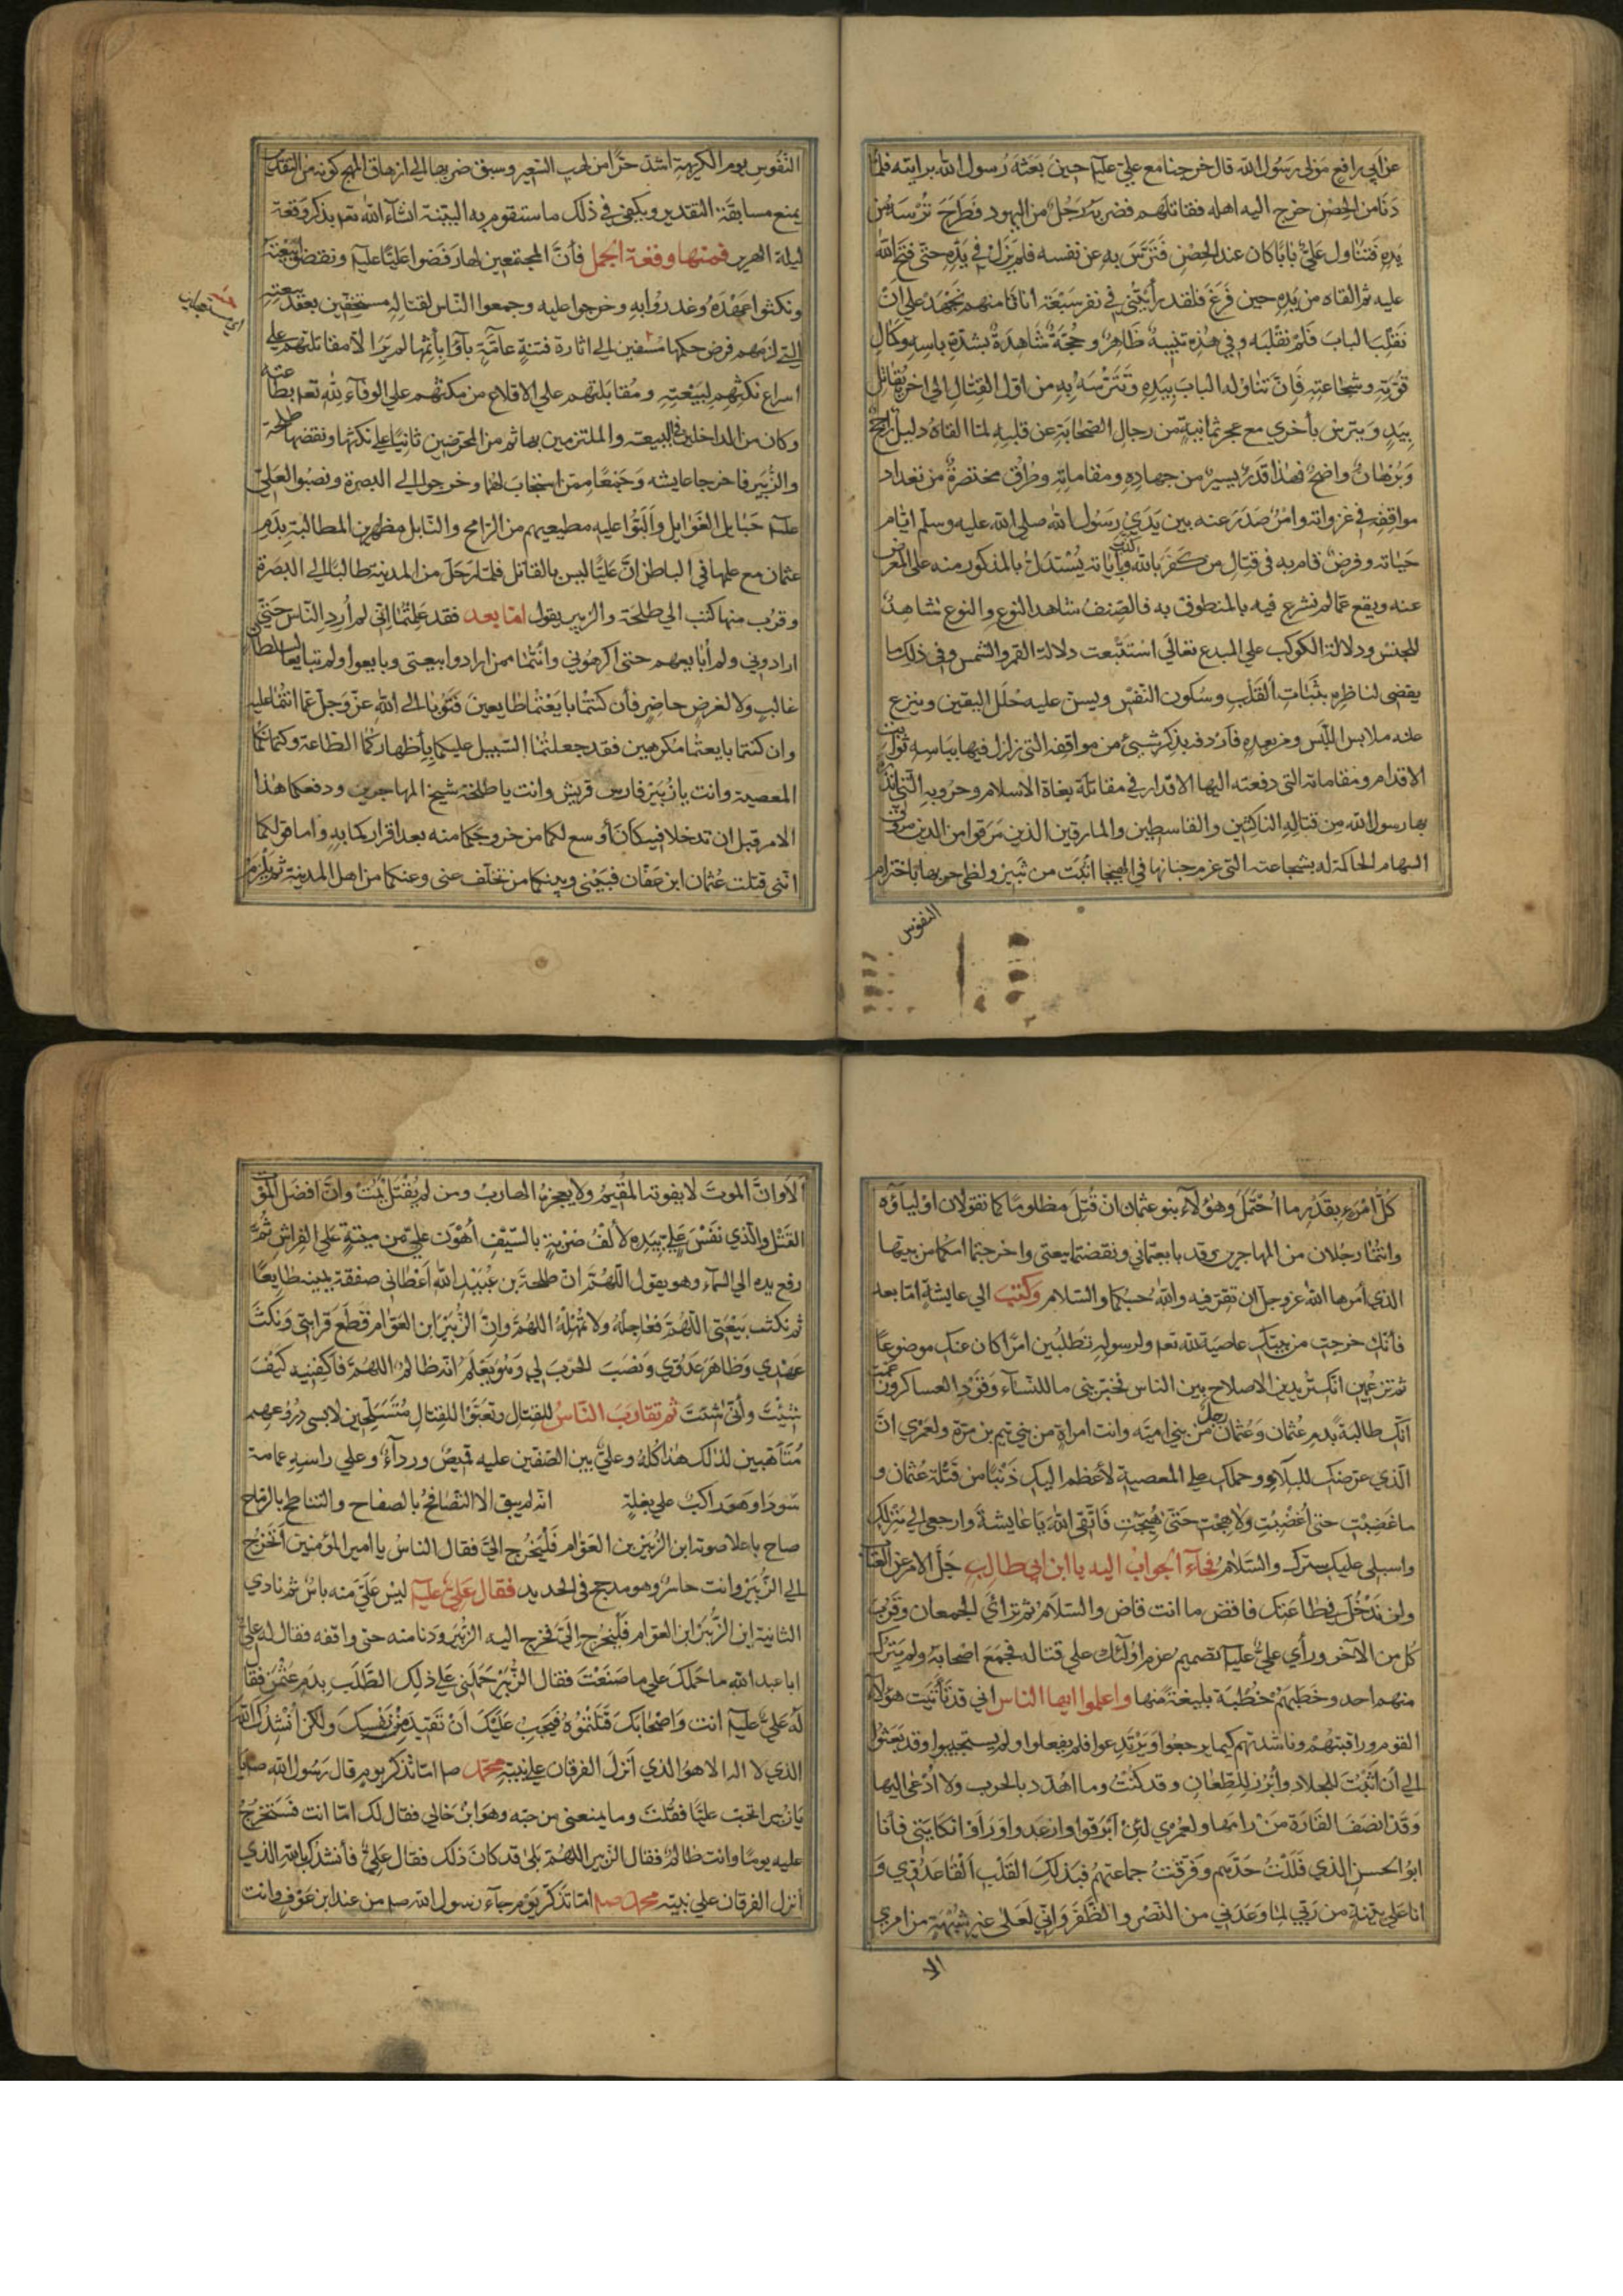 عن أبي رافع مولى رسول الله قال خرجنا مع علي عليه حين بعثه رسول الله برايته فلما
دنا من الحصن خرج اليه اهله فقاتلهم فضربه رجل من اليهود فطرح ترسه من
يده فتناول علي بابا كان عند الحصن فتترس به عن نفسه فلم يزل في يده حتى فتح الله
عليه ثم القاه من يده حين فرغ فلقد رأيتني في نفر سبعة انا ثامنهم نجهد على ان
نقلب الباب فلم نقلبه وفي هذه تنبيه ظاهر وحجة شاهدة بشدة باسه وكمال
قوته وشجاعته فان تناوله الباب بيده وتترسه به من اول القتال الى اخره يقاتل
بيد ويترس بأخرى مع عجز ثمانية من رجال الصحابة عن قلبه لما القاه دليل راجح
وبرهان واضح فهذا قدر يسير من جهاده ومقاماته وطرق مختصرة من تعداد
مواقفه في غزواته وامر صدر عنه بين يدي رسول الله صلى الله عليه وسلم ايام
حياته وفرض قام به في قتال من كفر بالله وبآياته يستدل بالمذكور منه على المعرض
عنه ويقع عما لم نشرع فيه بالمنطوق به فالصنف شاهد النوع والنوع شاهد
للجنس ودلالة الكوكب على المبدع تعالى استتبعت دلالة القمر والشمس وفي ذلك ما
يقضي لناظره بثبات القلب وسكون النفس ويسن عليه حلل اليقين وينزع
عنه ملابس اللبس وغر بعده فاردفه بذكر شيئ من مواقفه التي زلزل فيها بباسه ثوابت
الاقدام ومقاماته التي دفعته اليها الاقدار في مقاتلة بغاة الاسلام وحروبه التي انذره
بها رسول الله من قتاله الناكثين والقاسطين والمارقين الذين مرقوا من الدين مروق
السهام الحاكمة له بشجاعته التي غرم جنانها في الهيجا اثبت من ثبير ولظى حربها باخترام
النفوس
النفوس يوم الكريهة اشد حرا من لهب السعير وسبق ضربها الى ازهاق المهج كونه من التقدير
يمنع مسابقة التقدير ويكفي في ذلك ما ستقوم به البينة انشاء الله تعم بذكر وقعة
ليلة الهرير فمنها وقعة الجمل فأن المجتمعين لها رفضوا عليا عليه ونقضوا بيعته
ونكثوا عهده وغدروا به وخرجوا عليه وجمعوا الناس لقتاله مستخفين بعقد بيعته
التي لزمهم فرض حكمها مسفين الى اثارة فتنة عامة باؤا بأثمها لم ير الا مقاتلتهم على
اسراع نكثهم لبيعته ومقابلتهم على الاقلاع من مكثهم على الوفاء لله تعم بطاعته
وكان من الداخلين في البيعة والملتزمين بها ثم من المحرضين ثانيا على نكثها ونقضها طلحة
والزبير فاخرجا عايشه وجمعا ممن استجاب لهما وخرجوا الى البصرة ونصبوا لعلي
عليه حبايل الغوايل والبوا عليه مطيعيهم من الرامح والنابل مظهرين المطالبة بدم
عثمان مع علمها في الباطن ان عليا ليس بالقاتل فلما رحل من المدينة طالبا الى البصرة
وقرب منها كتب الى طلحة والزبير يقول اما بعد فقد علمتما اني لم أرد الناس حتى
ارادوني ولم أبايعهم حتى اكرهوني وانتما ممن ارادوا بيعتي وبايعوا ولم تبايعا لسلطان
غالب ولا لغرض حاضر فأن كنتما بايعتما طايعين فتوبا الى الله عز وجل عما انتما عليه
وان كنتما بايعتما مكرهين فقد جعلتما السبيل عليكما بأظهاركما الطاعة وكتمانكما
المعصية وانت يا زبير فارس قريش وانت يا طلحة شيخ المهاجرين ودفعكما هذا
الامر قبل ان تدخلا فيه كان أوسع لكما من خروجكما منه بعد اقراركما به واما قولكما
انني قتلت عثمان ابن عفان فبيني وبينكما من تخلف عني وعنكما من اهل المدينة ثم يلزم
كل امرء بقدر ما احتمل وهؤلاء بنو عثمان ان قتل مظلوما كما تقولان اولياؤه
وانتما رجلان من المهاجرين وقد بايعتماني ونقضتما بيعتي واخرجتما امكما من بيتها
الذي امرها الله عز وجل ان تقر فيه والله حسبكما والسلام وكتب الى عايشة اما بعد
فأنك خرجت من بيتك عاصية لله تعم ولرسوله تطلبين امرا كان عنك موضوعا
ثم تزعمين انك تريدين الاصلاح بين الناس فخبريني ما للنساء وقود العساكر وزعمت
انك طالبة بدم عثمان وعثمان رجل من بني امية وانت امراة من بني تيم بن مرة ولعمري ان
الذي عرضك للبلاء وحملك على المعصية لأعظم اليك ذنبا من قتلة عثمان و
ما غضبت حتى أغضبت ولا هجت حتى هيجت فاتقي الله يا عايشة وارجعي الى منزلك
واسبلي عليك سترك والسلام فجاء الجواب اليه يا ابن ابي طالب جل الامر عن العتاب
ولن ندخل في طاعتك فاقض ما انت قاض والسلام ثم تراأى الجمعان وقرب
كل من الآخر ورأى علي عليه تصميم عزم اولئك على قتاله فجمع اصحابه ولم يترك
منهم احد وخطبهم خطبة بليغة منها واعلموا ايها الناس اني قد تأنيت هؤلاء
القوم وراقبتهم وناشدتهم كيما يرجعوا ويرتدعوا فلم يفعلوا ولم يستجيبوا وقد بعثوا
الي أن اثبت للجلاد وأبرز للطعان وقد كنت وما اهدد بالحرب ولا ادعى اليها
وقد انصف القارة من راماها ولعمري لئن ابرقوا وارعدوا وراوا نكايتي فأنا
ابو الحسن الذي فللت حدهم وفرقت جماعتهم فبذلك القلب القا عدوي و
انا على بينة من ربي لما وعدني من النصر والظفر واني لعلى غير شبهة من امري
الا
ألا وان الموت لا يفوته المقيم ولا يعجزه الهارب ومن لم يقتل يمت وان افضل الموت
القتل والذي نفس علي بيده لألف ضربة بالسيف أهون علي من ميتة على الفراش ثم
رفع يده الى السماء وهو يقول اللهم ان طلحة بن عبيد الله اعطاني صفقة يمينه طايعا
ثم نكث بيعتي اللهم فعاجله ولا تمهله اللهم وان الزبير ابن العوام قطع قرابتي ونكث
عهدي وظاهر عدوي ونصب الحرب لي وهو يعلم انه ظالم اللهم فاكفنيه كيف
شئت وأنى شئت ثم تقارب الناس للقتال وتعبوا للقتال متسلحين لابسي دروعهم
متأهبين لذلك هذا كله وعلي بين الصفين عليه قميص ورداء وعلى راسه عمامة
سودا وهو راكب على بغلة انه لم يبق الا التصافح بالصفاح والتناطح بالرماح
صاح باعلا صوته اين الزبير بن العوام فليخرج الي فقال الناس يا امير المؤمنين اتخرج
الى الزبير وانت حاسر وهو مدجج في الحديد فقال علي عليه ليس علي منه باس ثم نادى
الثانية اين الزبير ابن العوام فليخرج الي فخرج اليه الزبير ودنا منه حتى واقفه فقال له علي
ابا عبد الله ما حملك على ما صنعت فقال الزبير حملني على ذلك الطلب بدم عثمن فقال
له علي عليه انت واصحابك قتلتموه فيجب عليك ان تقيد من نفسك ولكن أنشدك الله
الذي لا اله الا هو الذي انزل الفرقان على نبيه محمد صم اما تذكر يوم قال رسول الله صم
يا زبير اتحب عليا فقلت وما يمنعني من حبه وهو ابن خالي فقال لك اما انت فستخرج
عليه يوما وانت ظالم فقال الزبير اللهم بلى قد كان ذلك فقال علي فأنشدك بالله الذي
أنزل الفرقان على نبيه محمد صم اما تذكر يوم جاء رسول الله صم من عند ابن عوف وانت